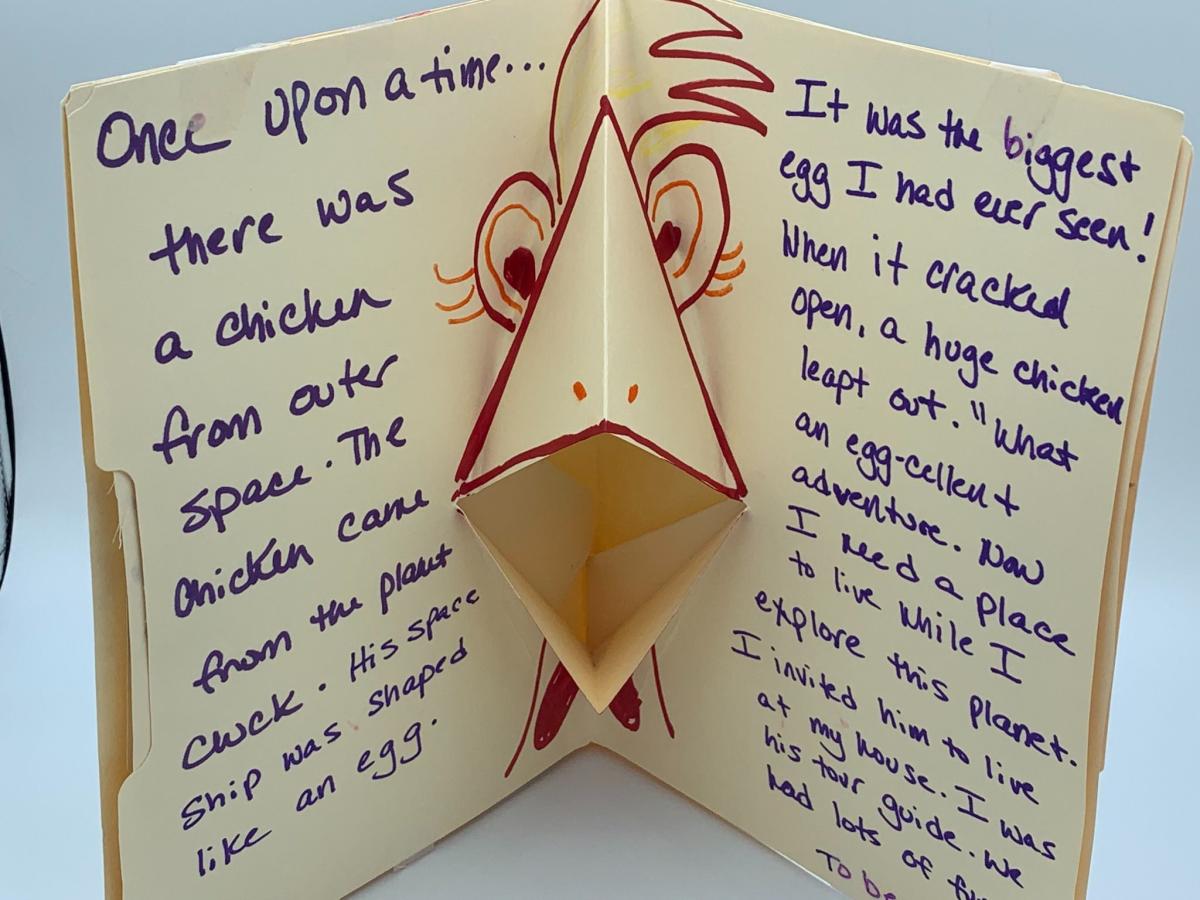 Once upon a time...
there was
a chicken
from outer
space. The
chicken came
from the planet
cluck. His space
ship was shaped
like an egg.
It was the biggest
egg I had ever seen!
When it cracked
open, a huge chicken
leapt out. "What
an egg-cellent
adventure. Now
I need a place
to live while I
explore this planet.
I invited him to live
at my house. I was
his tour guide. We
had lots of
To be